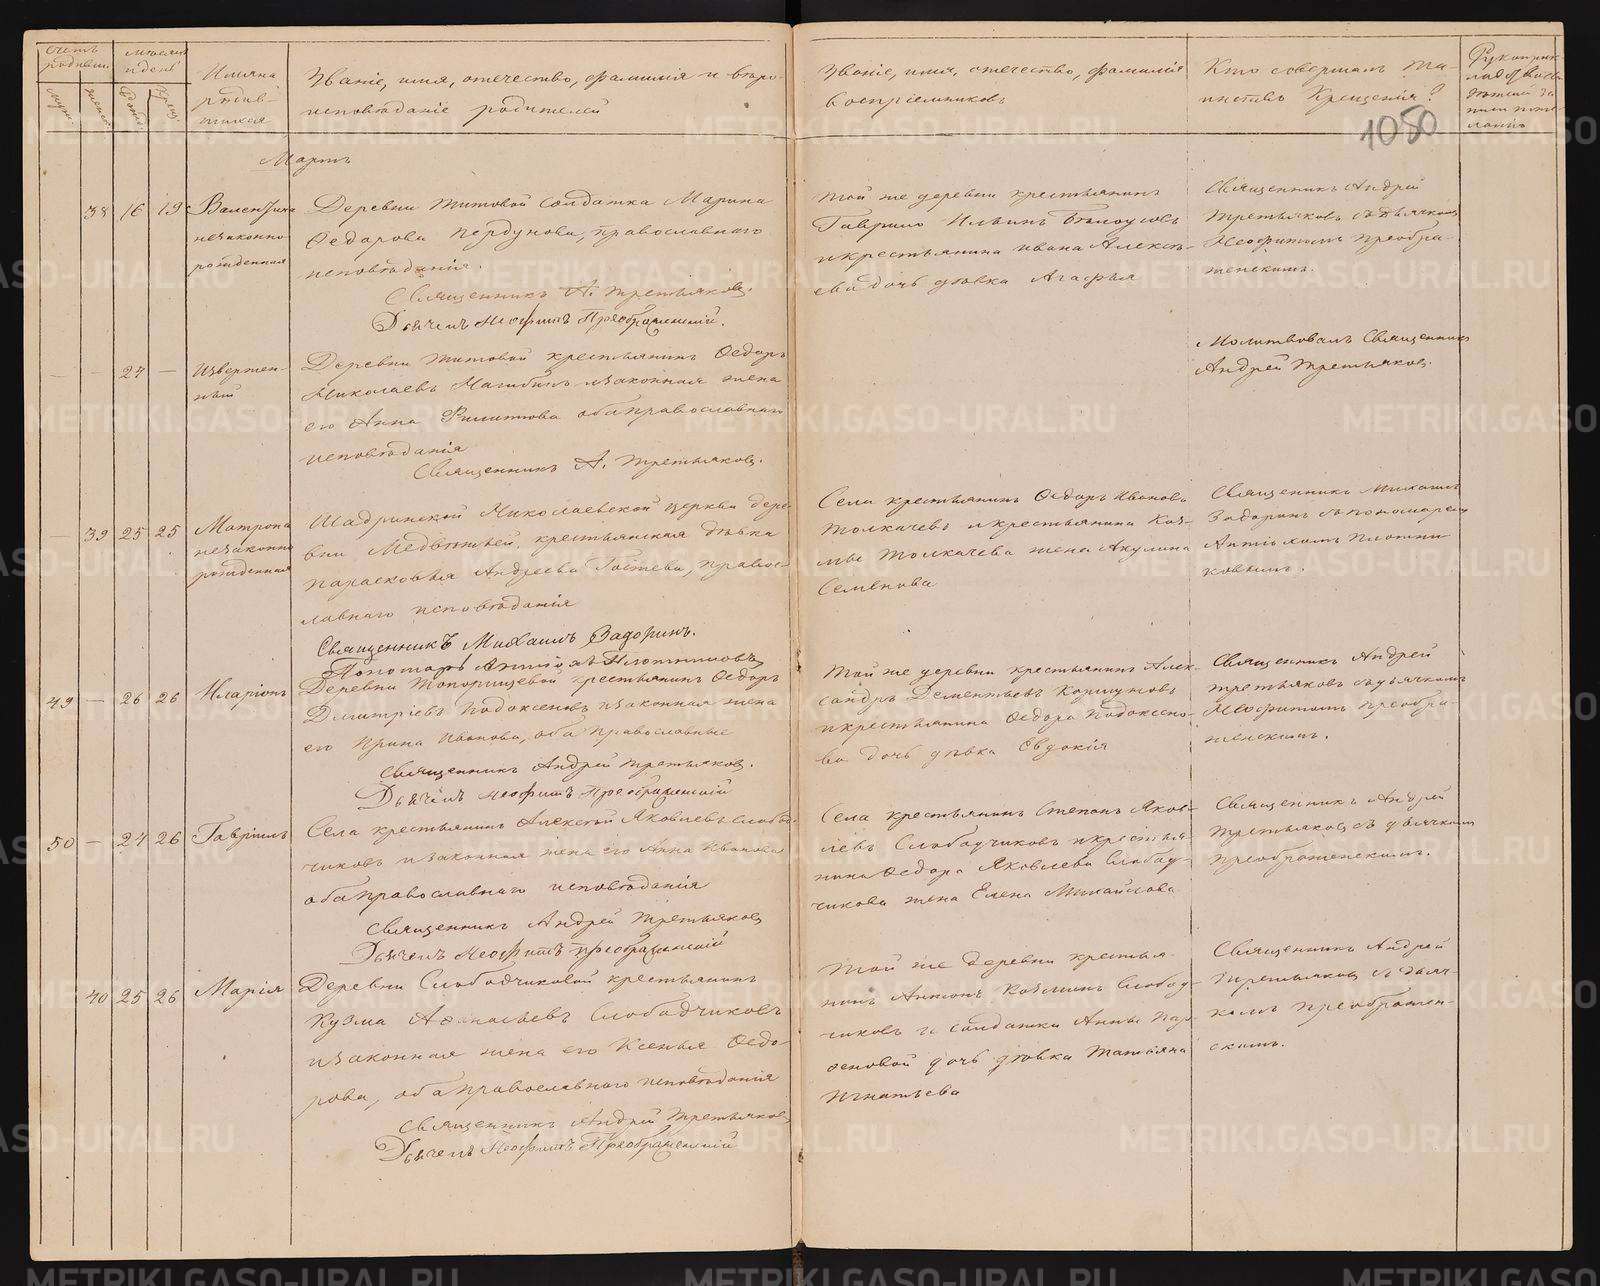 Счетъ родивш.
Муж. женск.
мѣсяцъ и день
Рожд. Крещ.
Имяна родив-
шихся
Званіе, имя, отечество, фамилія и вѣро-
исповѣданіе родителей
Званіе, имя, отечество, фамилія
воспріемниковъ
Кто совершалъ та-
инство Крещенія?
1050
Мартъ
38 16 19 Валентина
незаконно
рожденная
Деревни Титовой солдатка Марина
Ѳедорова Пердунова, православнаго
исповѣданія.
Священникъ А. Третьяковъ.
Дьячекъ Неофитъ Преображенскій.
Той же деревни крестьянинъ
Гаврило Ильинъ Бѣлоусовъ
и крестьянина Ивана Алексѣ-
ева дочь дѣвка Агафья
Священникъ Андрей
Третьяковъ съ дьячкомъ
Неофитомъ Преобра-
женскимъ.
— — 24 — Извержен-
ный
Деревни Титовой крестьянинъ Ѳедоръ
Николаевъ Нагибинъ и законная жена
его Анна Филипова оба православнаго
исповѣданія
Священникъ А. Третьяковъ.
Молитвовалъ Священникъ
Андрей Третьяковъ.
— 39 25 25 Матрона
незаконно
рожденная
Шадринской Николаевской церкви дере-
вни Медвѣжьей, крестьянская дѣвка
Парасковья Андреева Гостева, правос-
лавнаго исповѣданія
Священникъ Михаилъ Задоринъ.
Пономарь Антіохъ Плотниковъ
Села крестьянинъ Ѳедоръ Ивановъ
Толкачевъ и крестьянина Коз-
мы Толкачева жена Акулина
Семенова
Священникъ Михаилъ
Задоринъ съ пономаремъ
Антіохомъ Плотни-
ковымъ.
49 — 26 26 Иларіонъ
Деревни Топорищевой крестьянинъ Ѳедоръ
Димитріевъ Подоксеновъ и законная жена
его Ирина Иванова, оба православные
Священникъ Андрей Третьяковъ.
Дьячекъ Неофитъ Преображенскій
Той же деревни крестьянинъ Алек-
сандръ Дементьевъ Коршуновъ
и крестьянина Ѳедора Подоксено-
ва дочь дѣвка Евдокія
Священникъ Андрей
Третьяковъ съ дьячкомъ
Неофитомъ Преобра-
женскимъ.
50 — 24 26 Гавріилъ
Села крестьянинъ Алексѣй Яковлевъ Слобод-
чиковъ и законная жена его Анна Иванова
оба православнаго исповѣданія
Священникъ Андрей Третьяковъ
Дьячекъ Неофитъ Преображенскій
Села крестьянинъ Степанъ Яков-
левъ Слободчиковъ и крестья-
нина Ѳедора Яковлева Слобод-
чикова жена Елена Михайлова
Священникъ Андрей
Третьяковъ съ дьячкомъ
Преображенскимъ.
40 25 26 Марія
Деревни Слободчиковой крестьянинъ
Кузма Аѳанасьевъ Слободчиковъ
и законная жена его Ксенья Ѳедо-
рова, оба православнаго исповѣданія
Священникъ Андрей Третьяковъ
Дьячекъ Неофитъ Преображенскій
Той же деревни крестья-
нинъ Антонъ Козминъ Слобод-
чиковъ и солдатки Анны Пар-
ѳеновой дочь дѣвка Татьяна
Игнатьева
Священникъ Андрей
Третьяковъ съ дьяч-
комъ Преображен-
скимъ.
METRIKI.GASO-URAL.RU